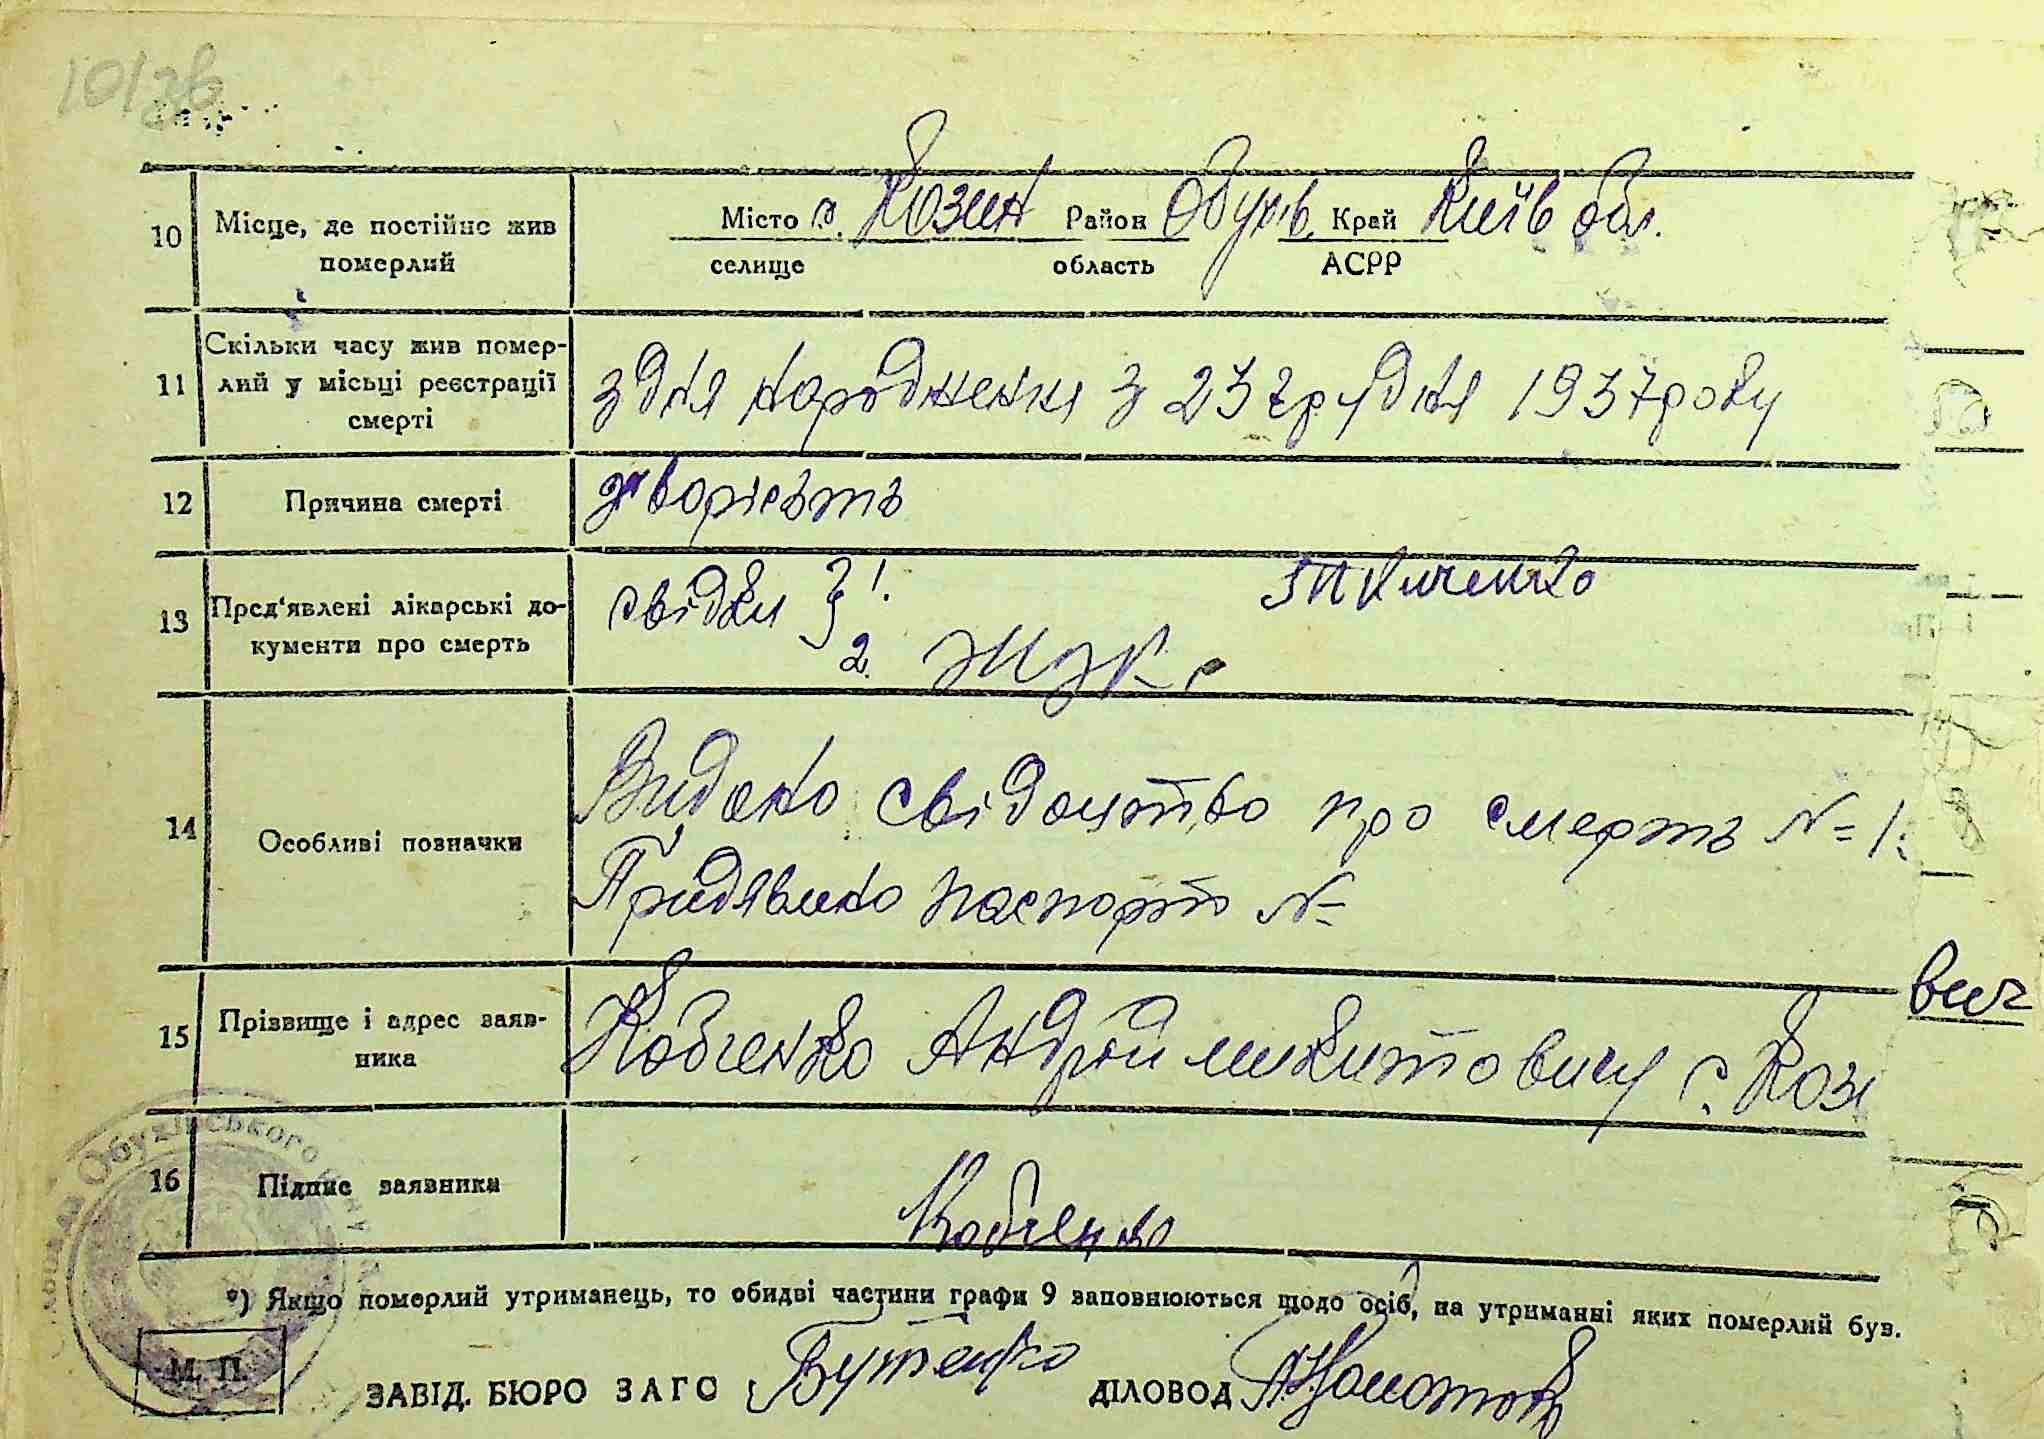 10/36
10 Місце, де постійно жив Місто с. Козин Район Обухів. Край Київ обл.
померлий селище область АСРР
Скільки часу жив помер-
11 лий у місьці реєстрації з дня народження з 23 грудня 1937 року
смерті
12 Причина смерті
13 Пред'явлені лікарські до- свідки } 1. Ткаченко
кументи про смерть 2. Жук
Видано свідоцтво про смерть № 1
14 Особливі позначки
Придявлено паспорт №
15 Прізвище і адрес заяв- Кобченко Андрій Микитович с. Кози
ника
вич
16 Підпис заявника Кобченко
Обухівського
*) Якщо померлий утриманець, то обидві частини графи 9 заповнюються щодо осіб, на утриманні яких померлий був.
М. П.
ЗАВІД. БЮРО ЗАГС Бутенко ДІЛОВОД